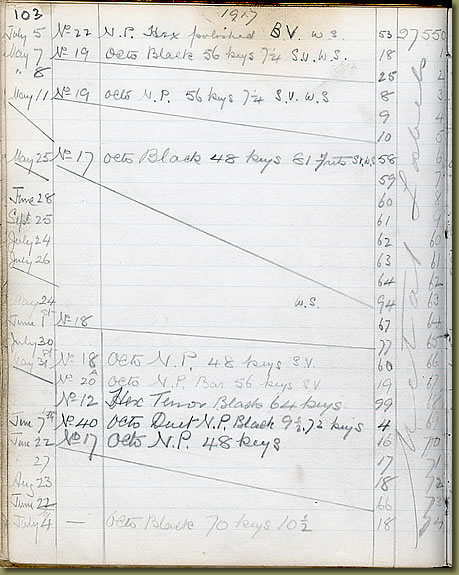 103 1917
July 5 No 22 N.P. Hex polished B.V. W.S. 53 97550
May 7 No 19 Octo Black 56 keys 7¼ S.V. W.S. 18 1
" 8 25 2
May 11 No 19 Octo N.P. 56 keys 7¼ S.V. W.S 8 3
9 4
10 5
May 25 No 17 Octo Black 48 keys S.V. W.S 58 6
59 7
June 28 60 8
Sept 25 61 9
July 24 62 60
July 26 63 61
64 62
May 24 W.S. 94 63
June 1st No 18 67 64
July 30 77 65
May 31st No 18 Octo N.P. 48 keys S.V. 60 66
No 20A Octo N.P. Bar 56 keys S.V 19 67
No 12 Hex Tenor Black 64 keys 99 68
June 7th No 40 Octo Duet N.P. Black 9½, 7½ keys 4 69
June 22 No 17 Octo N.P. 48 keys 16 70
27 17 71
Aug 23 18 72
June 22 66 73
July 4 — Octo Black 70 keys 10½ 18 74